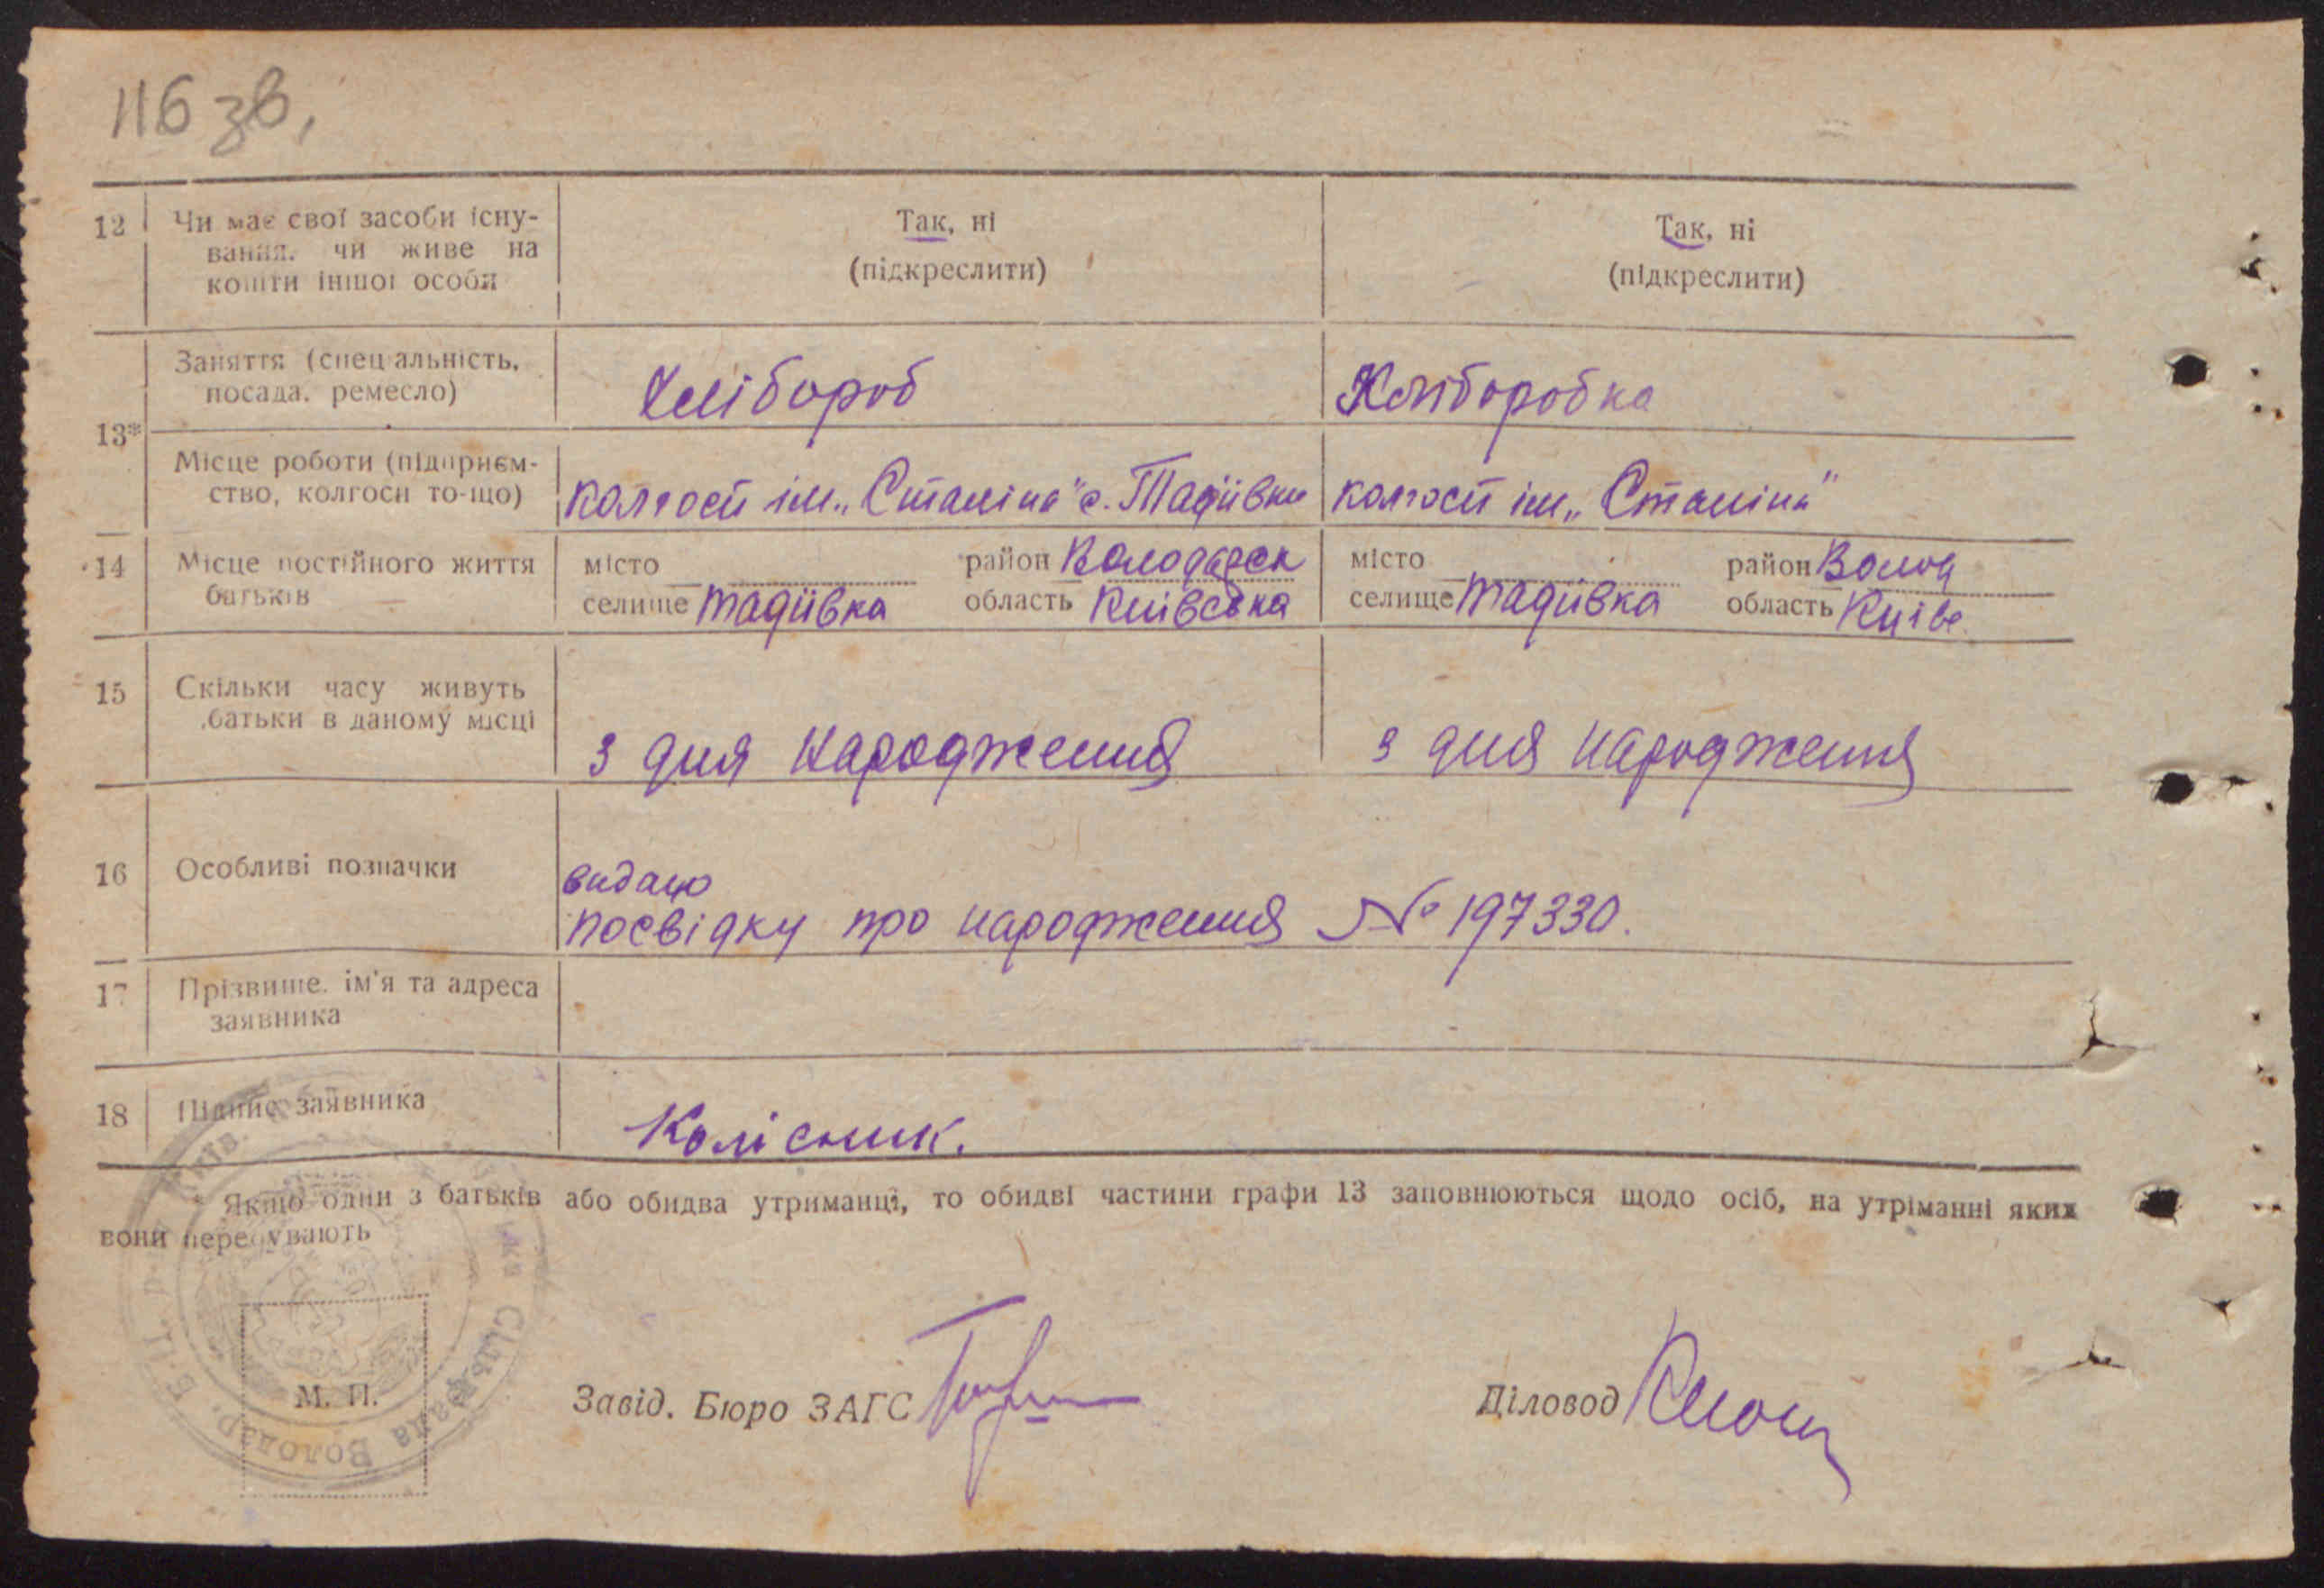 116 зв,
12 Чи має свої засоби існу- Так, ні Так, ні
вання, чи живе на (підкреслити) (підкреслити)
кошти іншої особи
Заняття (спеціальність, Хлібороб Хліборобка
посада, ремесло)
13*
Місце роботи (підприєм- колгосп ім. „Сталіна" с. Тадіївки колгосп ім „Сталіна"
ство, колгосп то-що)
14 Місце постійного життя місто район Володарск місто район Волод
батьків селище Тадіївка область Київська селище Тадіївка область Київс
15 Скільки часу живуть
батьки в даному місці з дня народження з дня народження
16 Особливі позначки видано
посвідку про народження № 197330.
17 Прізвище, ім'я та адреса
заявника
18 Підпис заявника Колісник.
* Якщо один з батьків або обидва утриманці, то обидві частини графи 13 заповнюються щодо осіб, на утріманні яких
вони перебувають
М. П. Завід. Бюро ЗАГС Діловод
Сільрада Володар.